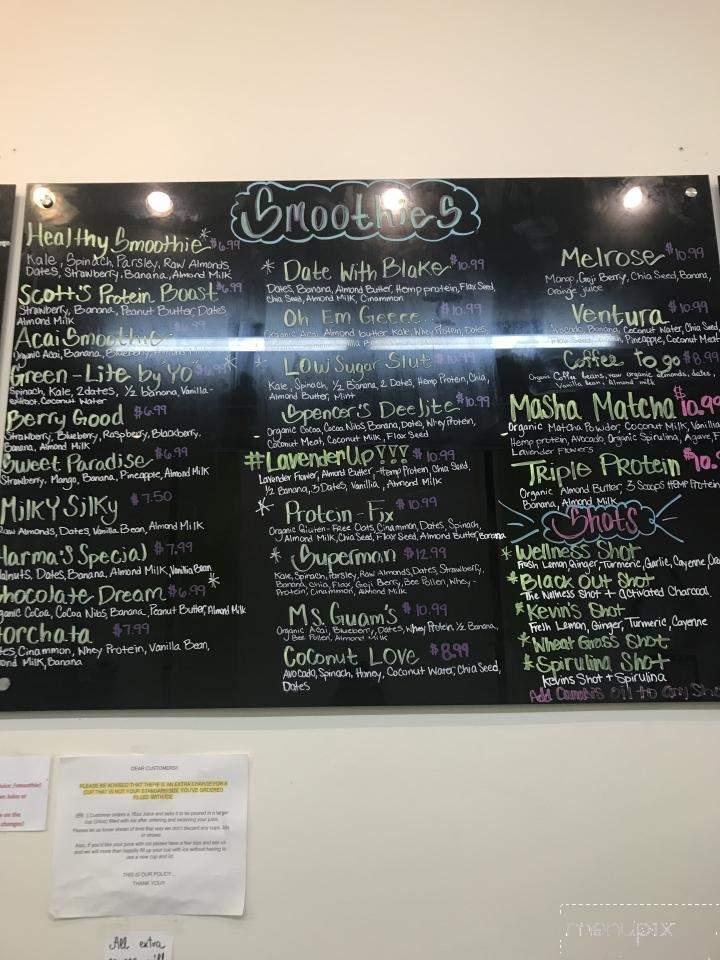 Smoothies
Healthy Smoothie $6.99
Kale, Spinach, Parsley, Raw Almonds,
Dates, Strawberry, Banana, Almond Milk
Scott's Protein Boost $6.99
Strawberry, Banana, Peanut Butter, Dates,
Almond Milk
Acai Smoothie
Organic Acai, Banana, Blueberry, Almond Milk
Green-Lite by Yo
Spinach, Kale, 2 dates, ½ banana, Vanilla-
extract, Coconut Water
Berry Good $6.99
Strawberry, Blueberry, Raspberry, Blackberry,
Banana, Almond Milk
Sweet Paradise $6.99
Strawberry, Mango, Banana, Pineapple, Almond Milk
Milky Silky $7.50
Raw Almonds, Dates, Vanilla Bean, Almond Milk
Harma's Special $7.99
Walnuts, Dates, Banana, Almond Milk, Vanilla Bean
Chocolate Dream $6.99
Organic Cocoa, Cocoa Nibs, Banana, Peanut Butter, Almond Milk
Horchata $7.99
Dates, Cinammon, Whey Protein, Vanilla Bean,
Almond Milk, Banana
* Date With Blake $10.99
Dates, Banana, Almond Butter, Hemp protein, Flax Seed,
Chia Seed, Almond Milk, Cinammon
Oh Em Geeee $10.99
Organic Acai, Almond butter, Kale, Whey Protein, Dates,
Low Sugar Slut
Kale, Spinach, ½ Banana, 2 Dates, Hemp Protein, Chia,
Almond Butter, Mint
Spencer's Deelite $10.99
Organic Cocoa, Cocoa Nibs, Banana, Dates, Whey Protein,
Coconut Meat, Coconut Milk, Flax Seed
#LavenderUp!!! $10.99
Lavender Flower, Almond Butter, Hemp Protein, Chia Seed,
½ Banana, 3 Dates, Vanilla, Almond Milk
* Protein-Fix $10.99
Organic Gluten-Free Oats, Cinammon, Dates, Spinach,
Almond Milk, Chia Seed, Flax Seed, Almond Butter, Banana
* Superman $12.99
Kale, Spinach, Parsley, Raw Almonds, Dates, Strawberry,
Banana, Chia, Flax, Goji Berry, Bee Pollen, Whey-
Protein, Cinammon, Almond Milk
Ms. Guam's $10.99
Organic Acai, Blueberry, Dates, Whey Protein, ½ Banana,
Bee Pollen, Almond Milk
Coconut Love $8.99
Avocado, Spinach, Honey, Coconut Water, Chia Seed,
Dates
Melrose $10.99
Mango, Goji Berry, Chia Seed, Banana,
Orange juice
Ventura $10.99
Avocado, Banana, Coconut Water, Chia Seed
Pineapple, Coconut Meat
Coffee to go $8.99
Organic Coffee beans, raw organic almonds, dates,
Vanilla bean, Almond milk
Masha Matcha $10.99
Organic Matcha Powder, Coconut Milk, Vanilla
Hemp protein, Avocado, Organic Spirulina, Agave,
Lavender Flowers
Triple Protein $10.
Organic Almond Butter, 3 Scoops HEMP Protein
Banana, Almond Milk
Shots
* Wellness Shot
Fresh Lemon, Ginger, Turmeric, Garlic, Cayenne,
* Black Out Shot
The Wellness Shot + Activated Charcoal
* Kevin's Shot
Fresh Lemon, Ginger, Turmeric, Cayenne
* Wheat Grass Shot
* Spirulina Shot
Kevins Shot + Spirulina
Add Cannabis Oil to any Shot
DEAR CUSTOMERS!!
PLEASE BE ADVISED THAT THERE IS AN EXTRA CHARGE FOR A
CUP THAT IS NOT YOUR STANDARD SIZE YOU'VE ORDERED
FILLED WITH ICE
Please let us know ahead of time that way we don't discard any cups, lids
or straws.
Also, if you'd like your juice with ice please have a few sips and ask us
and we will more than happily fill up your cup with ice without having to
use a new cup and lid.
THIS IS OUR POLICY...
THANK YOU!!
All extra
menupix